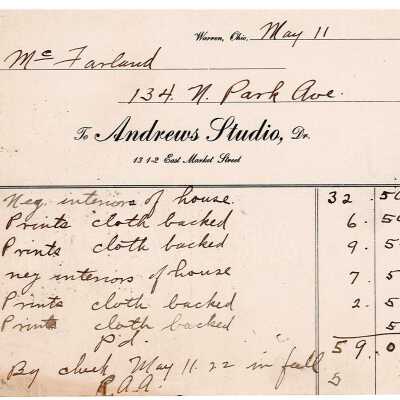 Warren, Ohio, May 11
Mc Farland
134 N. Park Ave.
To Andrews Studio, Dr.
13 1-2 East Market Street
Neg. interiors of house. 32. 50
Prints cloth backed 6. 50
Prints cloth backed 9. 5
neg interiors of house 7. 5
Prints cloth backed 2. 5
Prints cloth backed 5
Pd. 59. 0
By check May 11. 22 in full 5
R.A.A.